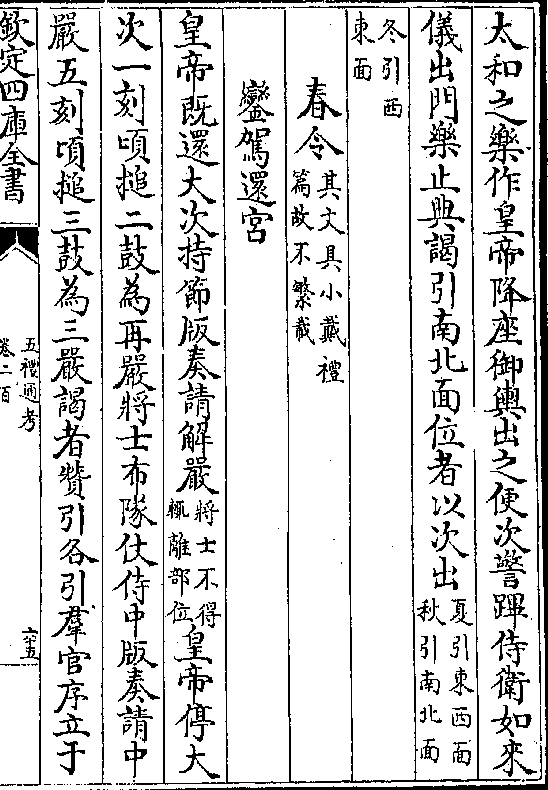 太和之樂作皇帝降座御輿出之便次警蹕侍衛如來
儀出門樂止典謁引南北面位者以次出夏引東西面秋引南北面
冬引西東面
春令其文具小戴禮篇故不繁載
鑾駕還宮
皇帝既還大次持節版奏請解嚴將士不得輒離部位皇帝停大
次一刻頃搥二鼓為再嚴將士布隊仗侍中版奏請中
嚴五刻頃搥三鼓為三嚴謁者贊引各引羣官序立于
欽定四庫全書
五禮通考
卷二百
六十五